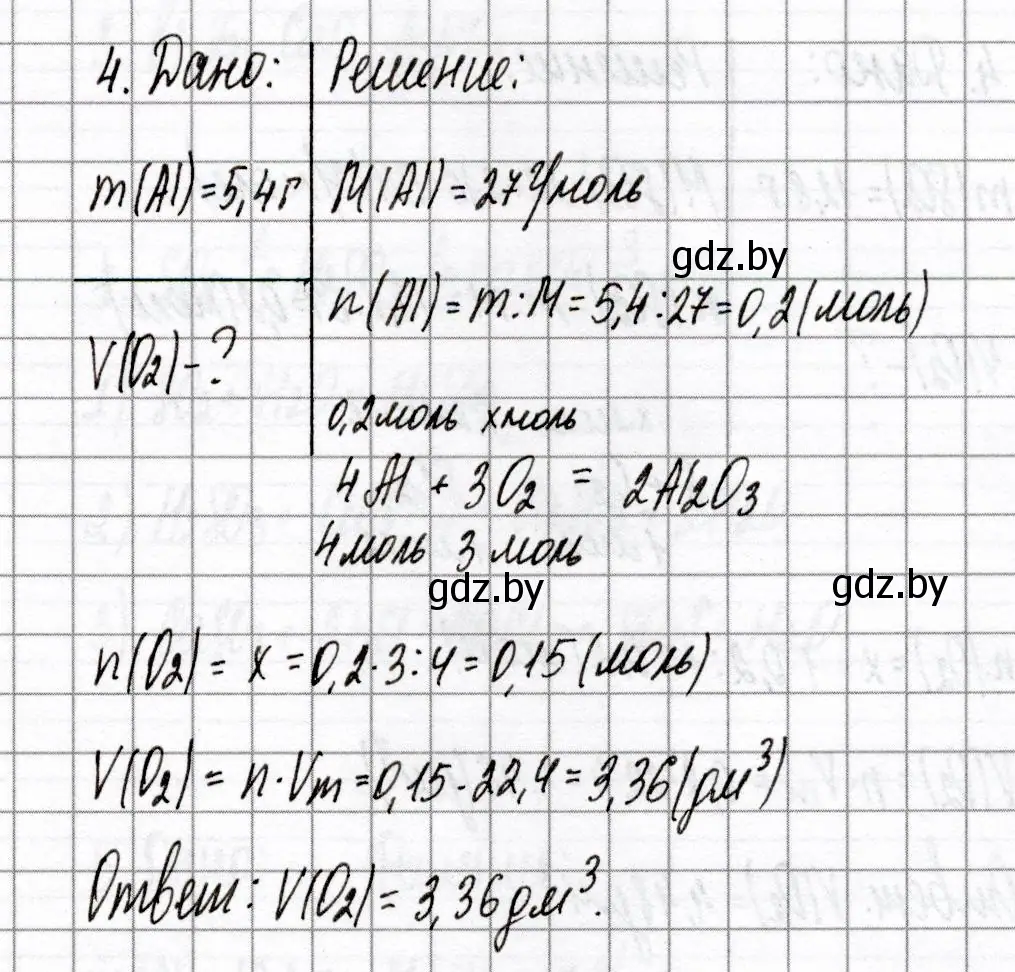 4. Дано: Решение:
m(Al)=5,4г M(Al)=27 г/моль
gdz.by
n(Al)=m:M=5,4:27=0,2(моль)
V(O2)-?
0,2моль xмоль
4Al + 3O2 = 2Al2O3
4моль 3моль
gdz.by gdz.by
n(O2)=x=0,2·3:4=0,15(моль)
V(O2)=n·Vm=0,15·22,4=3,36(дм³)
Ответ: V(O2)=3,36дм³.